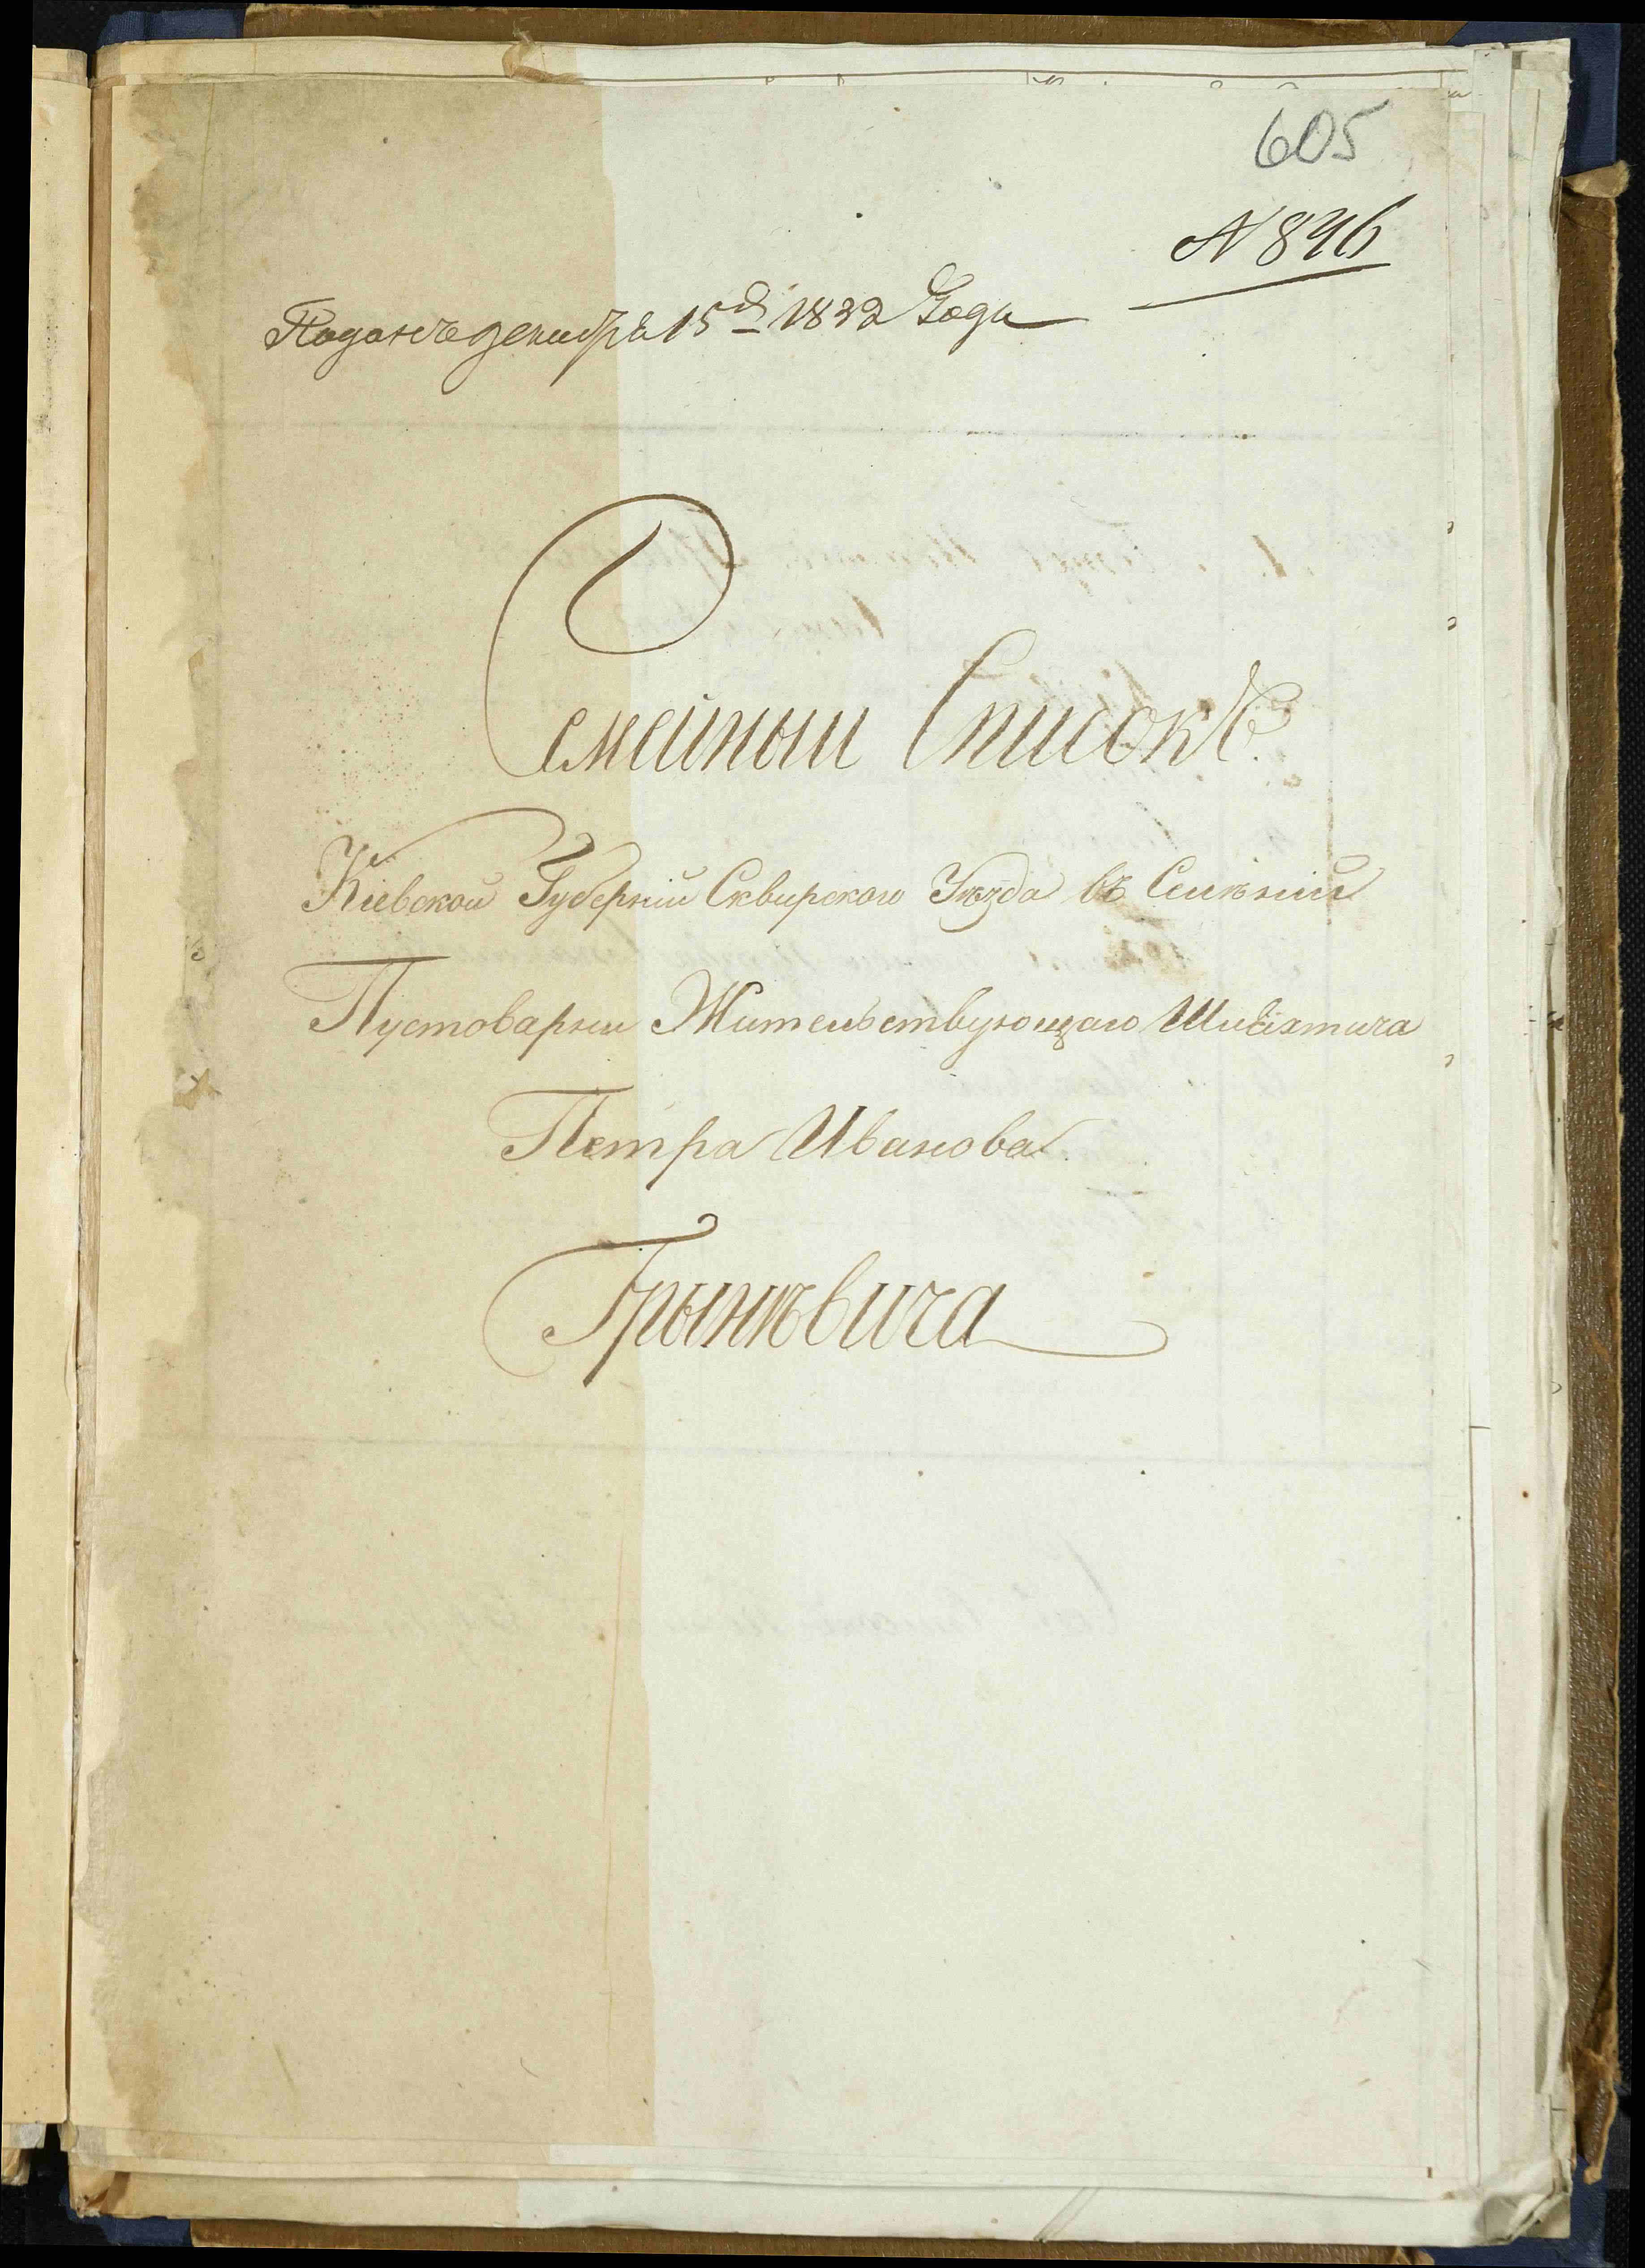 605
N 846
Поданъ декабря 15 д 1832 Года
Семейный Списокъ
Кіевской Губерніи Сквирского Уѣзда въ Селѣніи
Пустоварни Жительствующаго Шляхтича
Петра Иванова
Грынѣвича